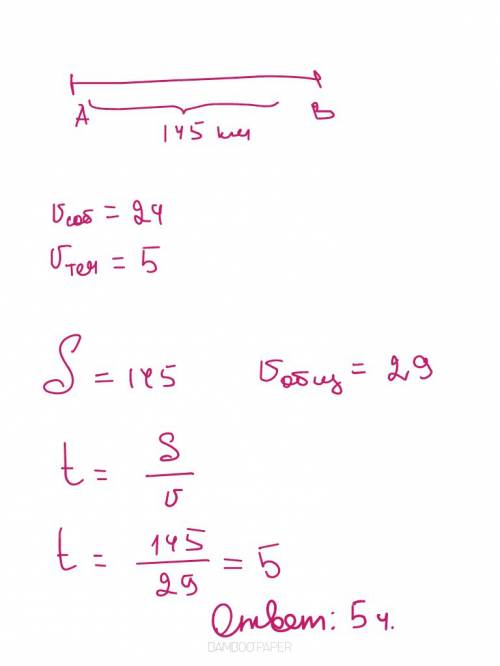 A B
145 км
υсоб = 24
υтеч = 5
S = 145 υобщ = 29
t = S/υ
t = 145/29 = 5
Ответ: 5 ч.
BAMBOOPAPER